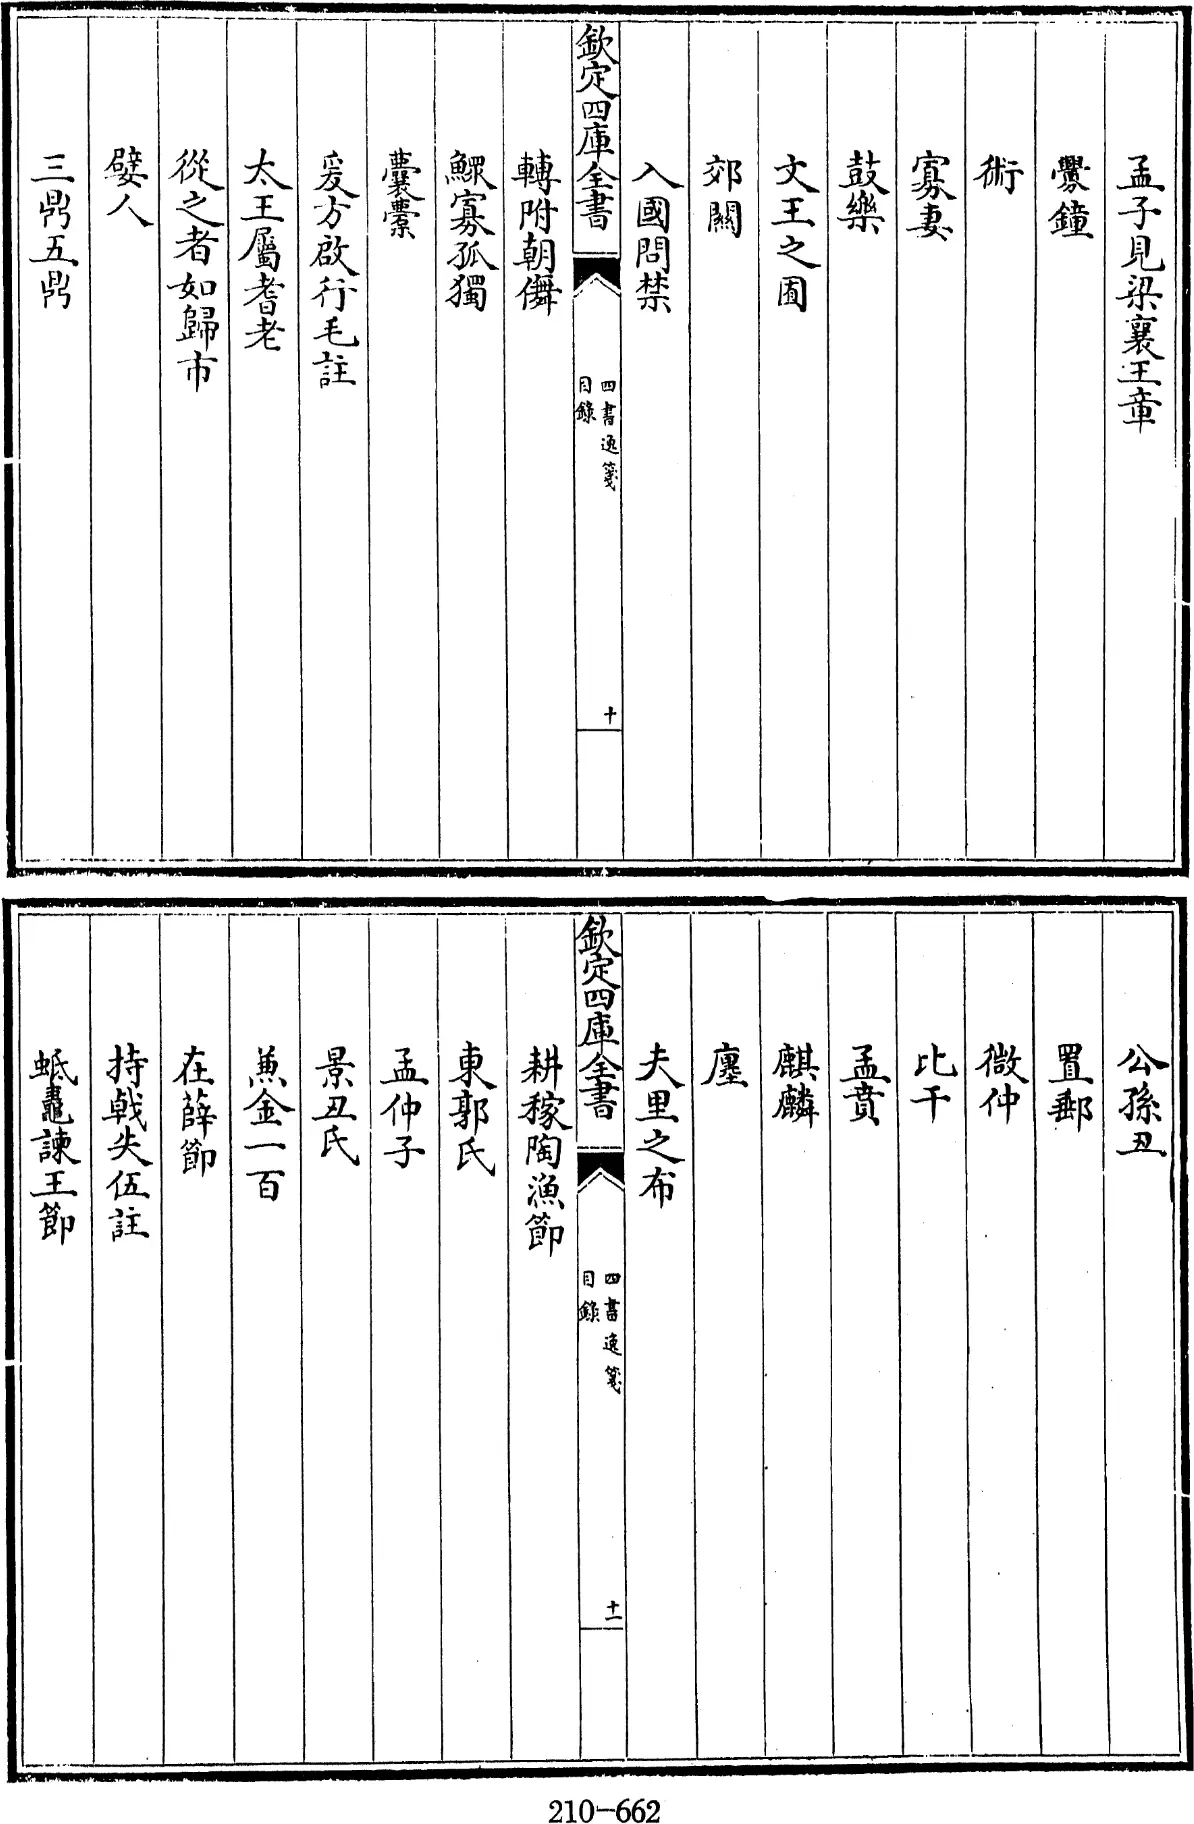 孟子見梁襄王章
釁鐘
術
寡妻
鼓樂
文王之囿
郊關
入國問禁
欽定四庫全書
四書逸箋
目錄
十
轉附朝儛
鰥寡孤獨
囊橐
爰方啟行毛註
太王屬耆老
從之者如歸市
嬖人
三鼎五鼎
公孫丑
置郵
微仲
比干
孟賁
麒麟
廛
夫里之布
欽定四庫全書
四書逸箋
目錄
十一
耕稼陶漁節
東郭氏
孟仲子
景丑氏
兼金一百
在薛節
持戟失伍註
蚳鼃諫王節
210-662